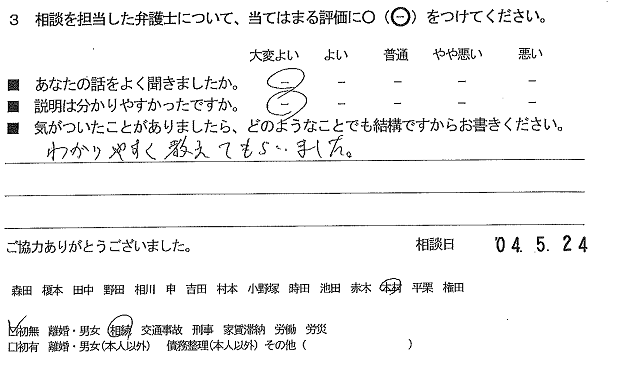 3 相談を担当した弁護士について、当てはまる評価に○（⊖）をつけてください。
大変よい よい 普通 やや悪い 悪い
■ あなたの話をよく聞きましたか。 − − − − −
■ 説明は分かりやすかったですか。 − − − − −
■ 気がついたことがありましたら、どのようなことでも結構ですからお書きください。
わかりやすく教えてもらいました。
ご協力ありがとうございました。 相談日 '04.5.24
森田 榎本 田中 野田 相川 申 吉田 村本 小野塚 時田 池田 赤木 木村 平栗 権田
☑初無 離婚・男女 相続 交通事故 刑事 家賃滞納 労働 労災
□初有 離婚・男女(本人以外) 債務整理(本人以外) その他（ ）